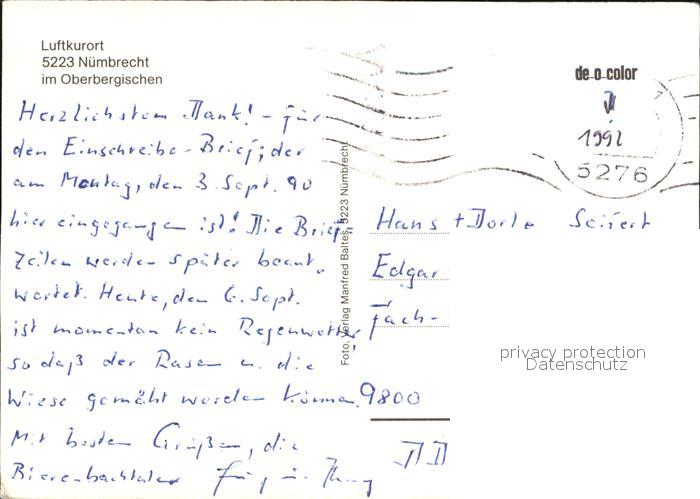 Luftkurort
5223 Nümbrecht
im Oberbergischen
Herzlichsten Dank! - für
den Einschreibe-Brief, der
am Montag, den 3. Sept. 90
hier eingegangen ist! Die Brief-
Zeilen werden später beant-
wortet. Heute, den 6. Sept.
ist momentan kein Regenwetter,
so daß der Rasen u. die
Wiese gemäht werden können.
Mit besten Grüßen, die
Bierenbachtaler
Foto, Verlag Manfred Baltes, 5223 Nümbrecht
de-o-color
1992
5276
Hans + Dorle Seifert
Edgar
Fach-
9800
privacy protection
Datenschutz